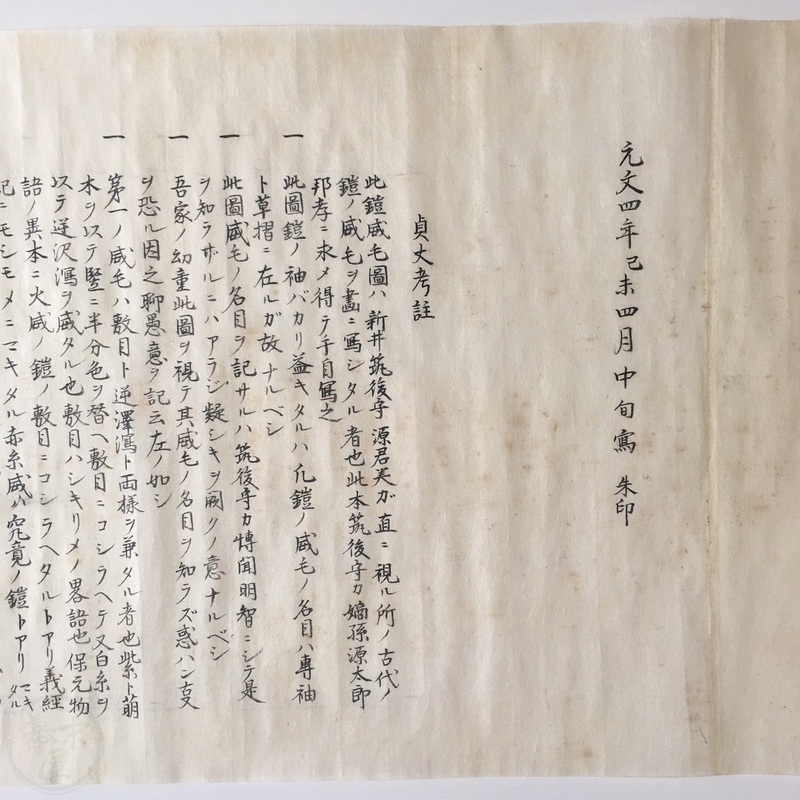 元文四年己未四月中旬寫 朱印
貞丈考註
此鎧威毛圖ハ新井筑後守源君美ガ直ニ視ル所ノ古代ノ
鎧ノ威毛ヲ畫ニ寫シタル者也此本筑後守カ嫡孫源太郎
邦孝ニ求メ得テ手自寫之
一 此圖鎧ノ袖バカリ益キタルハ凡鎧ノ威毛ノ名目ハ專袖
ト草摺ニ在ルガ故ナルベシ
一 此圖威毛ノ名目ヲ記サルハ筑後守カ博聞明智ニシテ是
ヲ知ラザルニハアラジ疑シキヲ闕クノ意ナルベシ
一 吾家ノ幼童此圖ヲ視テ其威毛ノ名目ヲ知ラズ惑ハン亥
ヲ恐ル因之聊愚意ヲ記云左ノ如シ
一 第一ノ威毛ハ敷目ト逆澤瀉ト両様ヲ兼タル者也紫ト萠
木ヲ以テ竪ニ半分色ヲ替ヘ敷目ニコシラヘテ又白糸ヲ
以テ逆沢瀉ヲ威タル也敷目ハシキリメノ畧語也保元物
語ノ異本ニ火威ノ鎧ノ敷目ニコシラヘタルトアリ義經
記ニモシモメニマキタル赤糸威ハ究竟ノ鎧トアリ マキタル